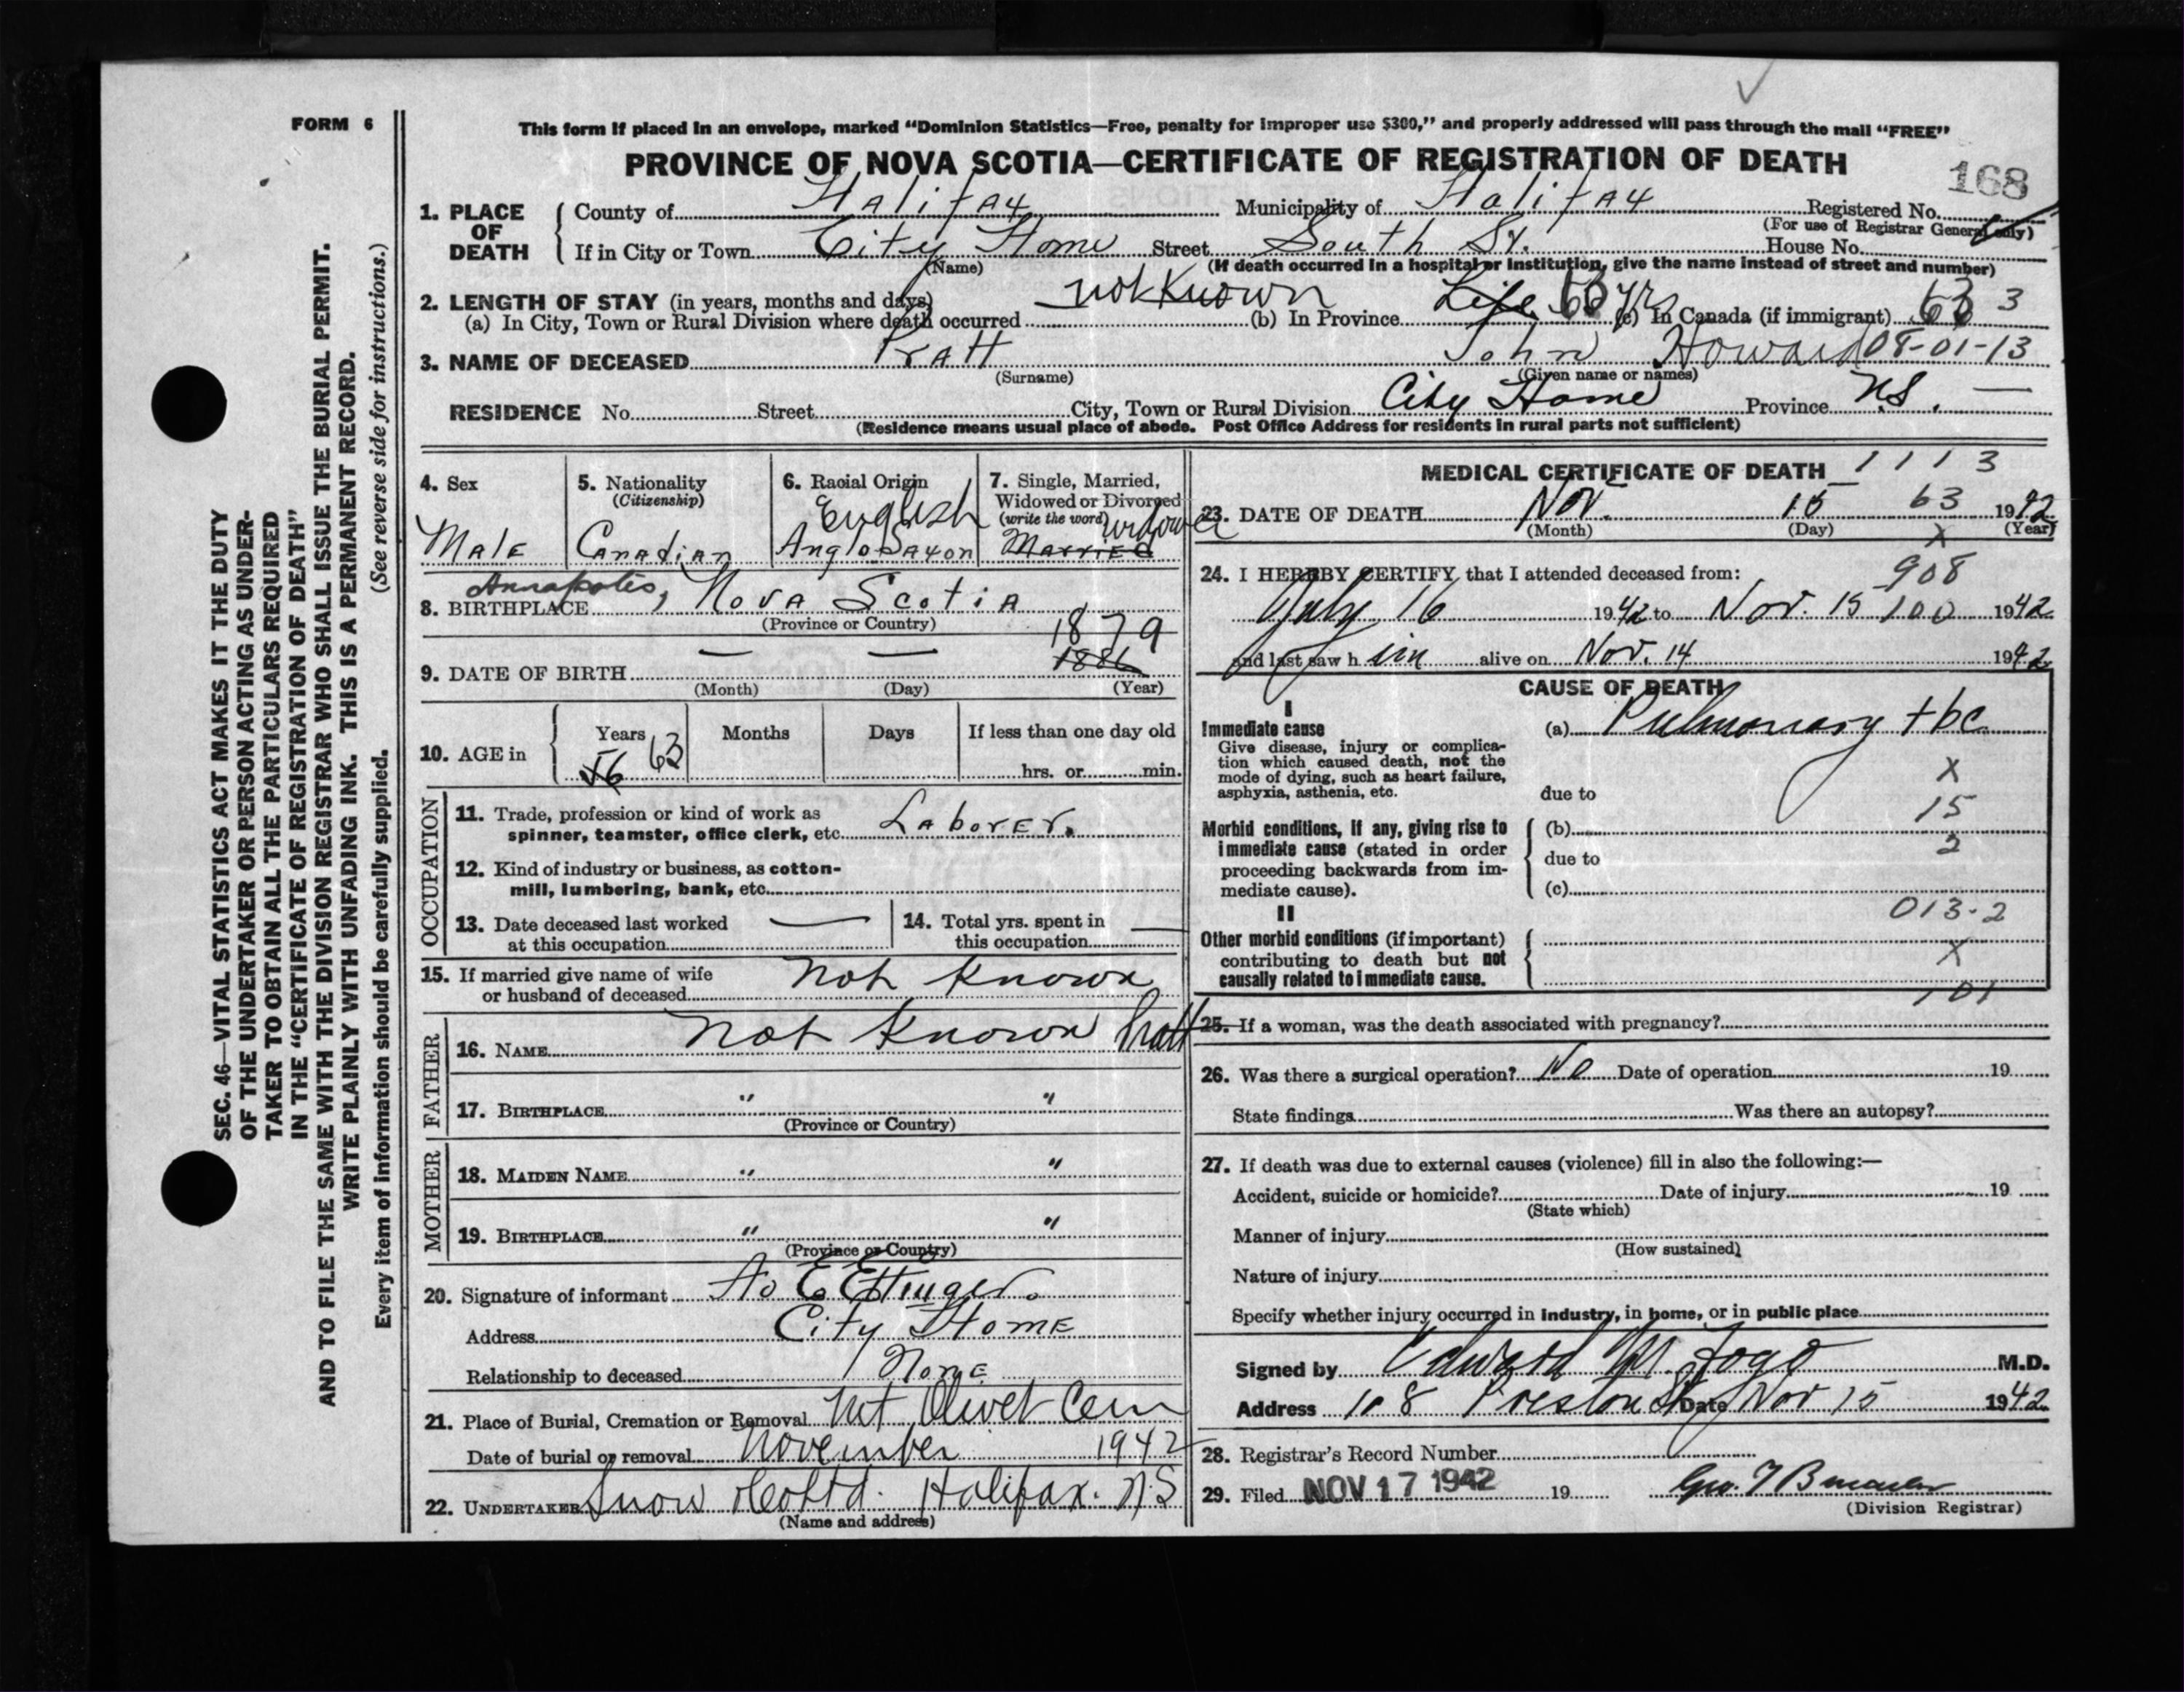 FORM 6
This form if placed in an envelope, marked “Dominion Statistics—Free, penalty for improper use $300,” and properly addressed will pass through the mail “FREE”
PROVINCE OF NOVA SCOTIA—CERTIFICATE OF REGISTRATION OF DEATH
168
1. PLACE OF DEATH { County of Halifax Municipality of Halifax Registered No.
(For use of Registrar General only)
If in City or Town City Home Street South St. House No.
(Name) (If death occurred in a hospital or institution, give the name instead of street and number)
2. LENGTH OF STAY (in years, months and days)
(a) In City, Town or Rural Division where death occurred not known (b) In Province Life yrs (c) In Canada (if immigrant) 63 3
3. NAME OF DECEASED Pratt John Howard 08-01-13
(Surname) (Given name or names)
RESIDENCE No. Street City, Town or Rural Division City Home Province N.S. —
(Residence means usual place of abode. Post Office Address for residents in rural parts not sufficient)
4. Sex 5. Nationality (Citizenship) 6. Racial Origin 7. Single, Married, Widowed or Divorced (write the word)
Male Canadian English Anglo Saxon Married widower
8. BIRTHPLACE Annapolis, Nova Scotia
(Province or Country)
9. DATE OF BIRTH — — 1886 1879
(Month) (Day) (Year)
10. AGE in { Years 56 63 Months Days If less than one day old
hrs. or min.
OCCUPATION
11. Trade, profession or kind of work as
spinner, teamster, office clerk, etc. Laborer.
12. Kind of industry or business, as cotton-
mill, lumbering, bank, etc.
13. Date deceased last worked at this occupation — 14. Total yrs. spent in this occupation —
15. If married give name of wife
or husband of deceased Not Known
FATHER
16. NAME Not Known Pratt
17. BIRTHPLACE " "
(Province or Country)
MOTHER
18. MAIDEN NAME " "
19. BIRTHPLACE " "
(Province or Country)
20. Signature of informant E Ettinger.
Address City Home
Relationship to deceased None
21. Place of Burial, Cremation or Removal Mt Olivet Cem
Date of burial or removal November 1942
22. UNDERTAKER Snow & Co Ltd. Halifax. N.S
(Name and address)
MEDICAL CERTIFICATE OF DEATH 1113
23. DATE OF DEATH Nov. 15 63 1942
(Month) (Day) (Year)
X
24. I HEREBY CERTIFY that I attended deceased from:
908
July 16 1942 to Nov. 15 100 1942
and last saw h im alive on Nov. 14 1942
CAUSE OF DEATH
I
Immediate cause (a) Pulmonary tbc
Give disease, injury or complica-
tion which caused death, not the
mode of dying, such as heart failure,
asphyxia, asthenia, etc.
X
due to
15
Morbid conditions, if any, giving rise to
immediate cause (stated in order
proceeding backwards from im-
mediate cause).
(b)
due to 2
(c)
II
013-2
Other morbid conditions (if important)
contributing to death but not
causally related to immediate cause.
X
101
25. If a woman, was the death associated with pregnancy?
26. Was there a surgical operation? No Date of operation 19
State findings Was there an autopsy?
27. If death was due to external causes (violence) fill in also the following:—
Accident, suicide or homicide? Date of injury 19
(State which)
Manner of injury
(How sustained)
Nature of injury
Specify whether injury occurred in industry, in home, or in public place
Signed by Edward M Fogo M.D.
Address 108 Preston St Date Nov 15 1942
28. Registrar's Record Number
29. Filed NOV 17 1942 19
(Division Registrar)
SEC. 46—VITAL STATISTICS ACT MAKES IT THE DUTY
OF THE UNDERTAKER OR PERSON ACTING AS UNDER-
TAKER TO OBTAIN ALL THE PARTICULARS REQUIRED
IN THE “CERTIFICATE OF REGISTRATION OF DEATH”
AND TO FILE THE SAME WITH THE DIVISION REGISTRAR WHO SHALL ISSUE THE BURIAL PERMIT.
WRITE PLAINLY WITH UNFADING INK. THIS IS A PERMANENT RECORD.
Every item of information should be carefully supplied. (See reverse side for instructions.)